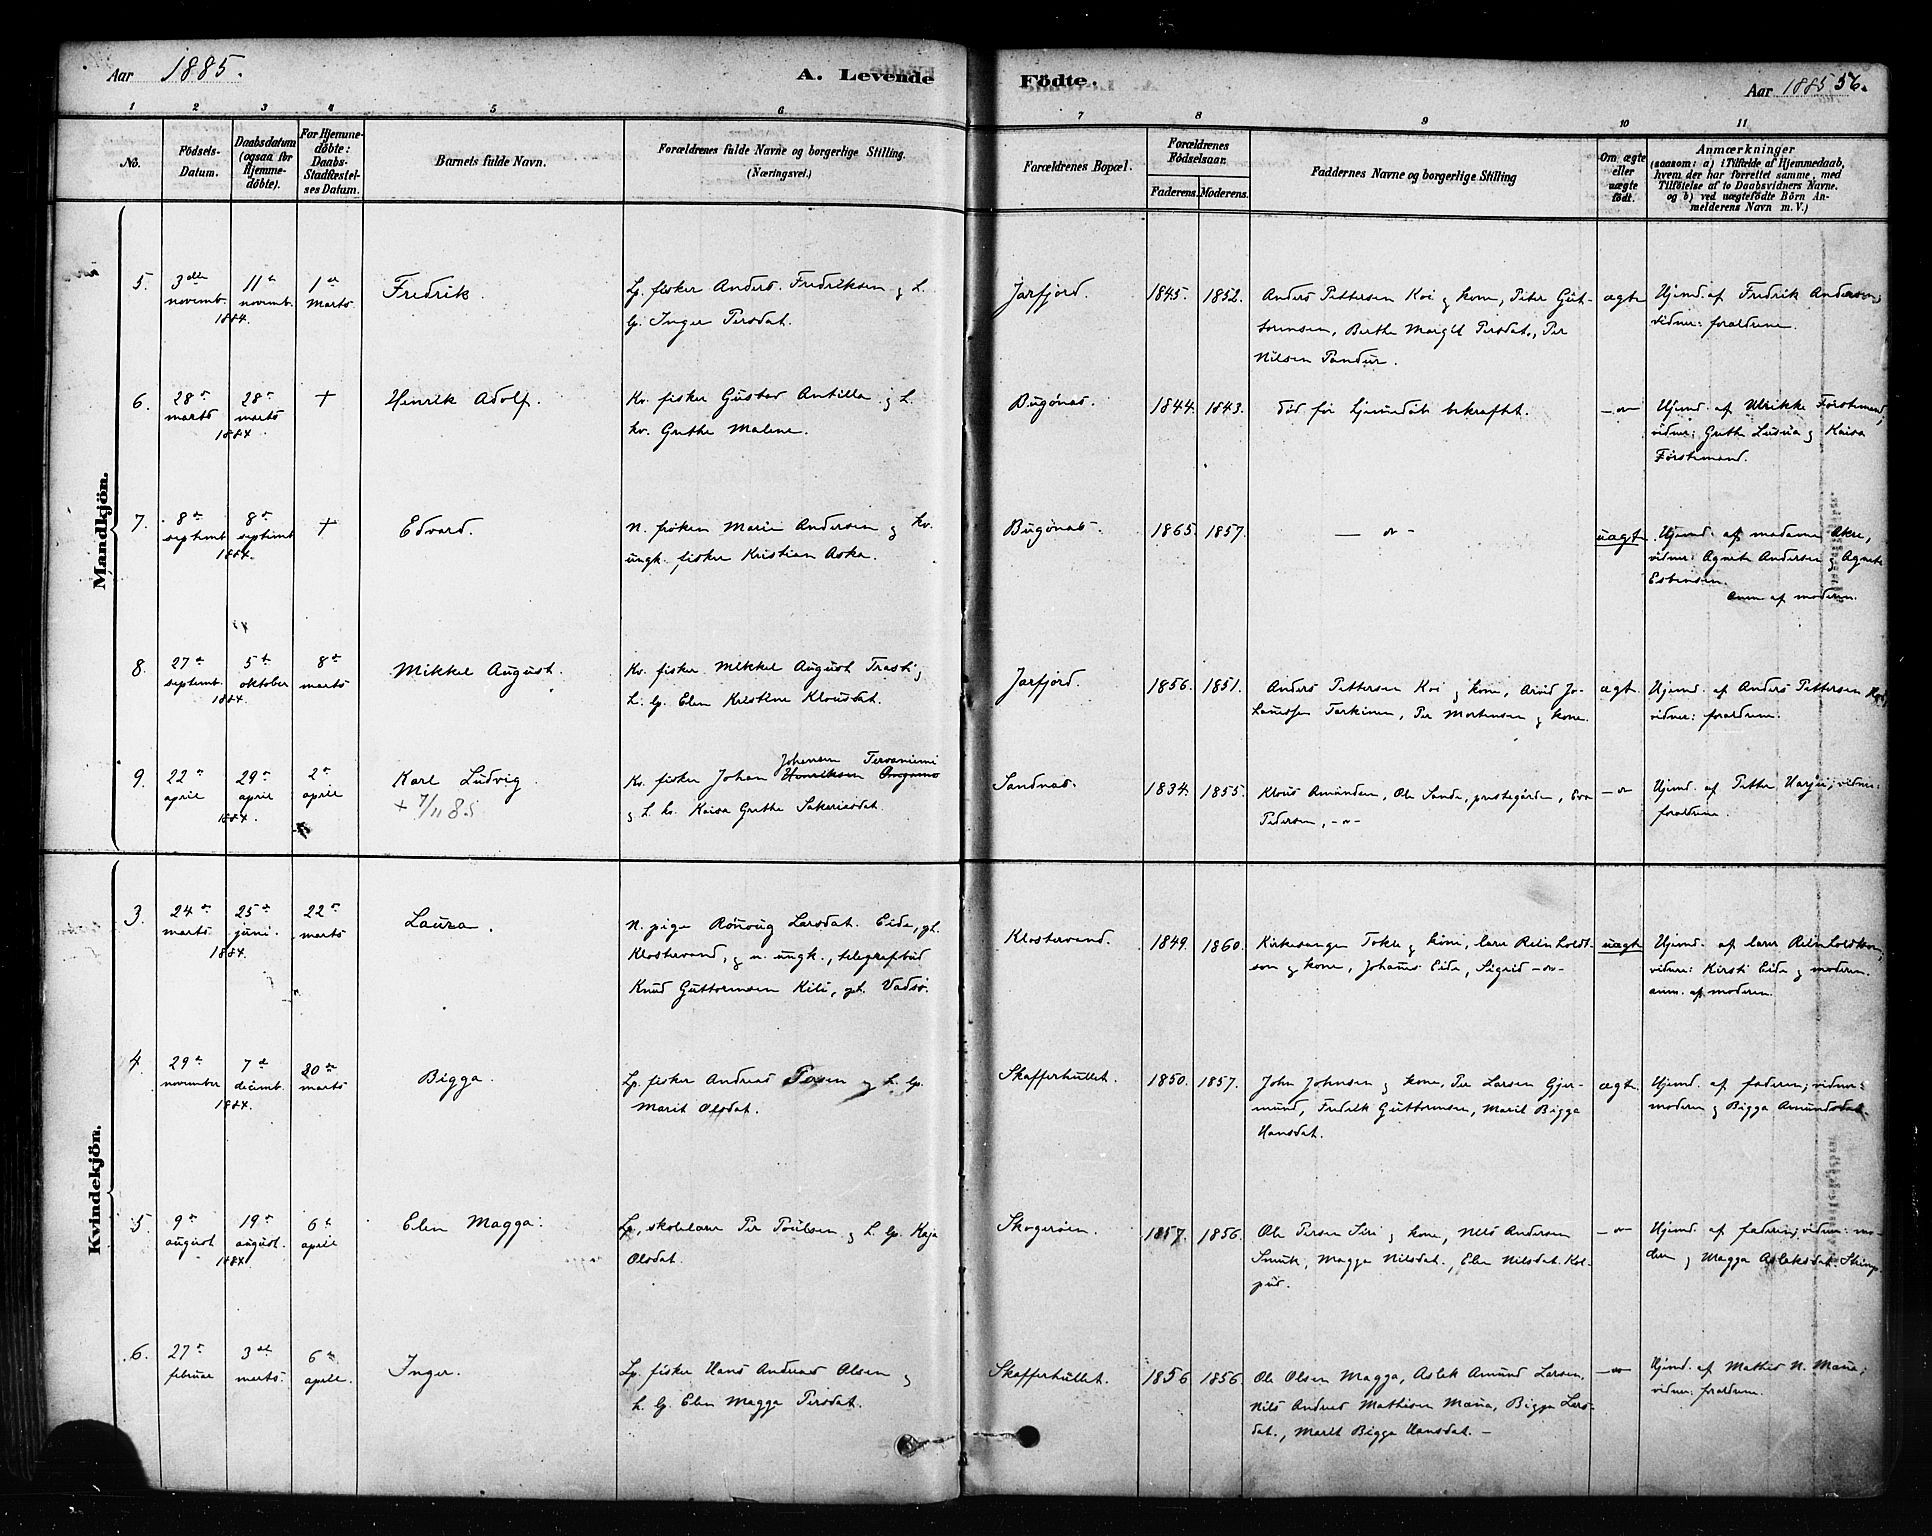 Aar 1885.
A. Levende
Födte.
Aar 1885 56.
1 2 3 4 5 6 7 8 9 10 11
No.
Födsels-Datum.
Daabsdatum (ogsaa for Hjemme-döbte).
For Hjemme-döbte: Daabs-Stadfæstel-ses Datum.
Barnets fulde Navn.
Forældrenes fulde Navne og borgerlige Stilling. (Næringsvei.)
Forældrenes Bopæl.
Forældrenes Födselsaar.
Faderens. Moderens.
Faddernes Navne og borgerlige Stilling
Om ægte eller uægte födt.
Anmærkninger
(saasom: a) i Tilfælde af Hjemmedaab,
hvem der har forrettet samme, med
Tilföielse af to Daabsvidners Navne.
og b) ved uægtefödte Börn An-
melderens Navn m. V.)
Mandkjön.
5. 3die novemb. 11te novemb. 1884. 1ste Marts
Fredrik.
Lp. fisker Anders Fredriksen og L.
lp. Inger Persdat.
Jarfjord.
1845. 1852.
Anders Pettersen Koi og kone, Peter Gut-
tormsen, Berthe Margit Persdat., Per
Nilsen Pandur.
ægte
Hjemd. af Fredrik Andersen;
vidner: forældrene.
6. 28de marts 28de marts 1884. +
Henrik Adolf.
Kv. fisker Gustav Antilla og L.
kv. Grethe Malene.
Bugønæs.
1844. 1843.
død før hjemdåb bekræftet.
—"—
Hjemd. af Ulrikke Förstemand,
vidner: Grethe Lusua og Kaisa
Förstemand.
7. 8de septemb. 8de septemb. 1884. +
Edvard.
N. frøken Marie Andersen og kv.
ungk. fisker Kristian Aska.
Bugønæs
1865. 1857.
— " —
uægt
Hjemd. af madame Akre,
vidner: Agnete Andersen og Agnete
Estensen.
Anm. af moderen.
8. 27de septemb. 5te oktober 1884. 8de marts
Mikkel August.
Kv. fisker Mikkel August Trasti og
L. lp. Elen Kristine Klousdat.
Jarfjord.
1856. 1851.
Anders Pettersen Koi og kone, Arvid Jo-
Tarkinen, Per Mortensen og kone.
ægt.
Hjemd. af Anders Pettersen Koi,
vidner: forældrene.
9. 22de april 29de april 1884. 2den april
Karl Ludvig
+ 7/11 85
Johansen Tervaniemi
Kv. fisker Johan Henriksen
og L. kv. Kaisa Grethe Sakariasdat.
Sandnæs.
1834. 1855.
Klous Amundsen, Ole Sande, præstegården, Eva
Pedersen, —"—
—"—
Hjemd. af Petter Harju; vidner:
forældrene.
Kvindekjön.
3. 24de marts 25de juni. 1884. 22de marts
Laura.
N. pige Rönnoug Larsdat. Eide, ph.
Klostervand, og n. ungk., telegrafbud
Knud Guttormsen Kili, ph. Vadsö.
Klostervand.
1849. 1860.
Kirkesanger Tokle og kone, lærer Reinholdt-
sen og kone, Johannes Eide, Sigrid —"—
uægt
Hjemd. af lærer Reinholdtsen,
vidner: Kirsti Eide og moderen.
anm. af moderen.
4. 29de november 7de decemb. 1884. 20de marts
Bigga.
Lp. fisker Andreas Posen og L. lp.
Marit Olsdat.
Skafferhullet.
1850. 1857.
John Johnsen og kone, Per Larsen Gjer-
mund, Fredrik Guttormsen, Marit Bigga
Hansdat.
ægt.
Hjemd. af faderen; vidner:
moderen og Bigga Amundsdat.
5 9de august 19de august. 1884. 6te april
Elen Magga.
Lp. skolelærer Per Poulsen og L. lp. Kaja
Olsdat.
Skogerøen.
1857. 1856.
Ole Persen Siri og kone, Nils Andersen
Smuk, Magga Nilsdat., Elen Nilsdat. Kol-
pus.
—"—
Hjemd. af faderen; vidner: mo-
deren og Magga Aslaksdat. Skimp.
6. 27de februar 3die marts. 6te april.
Inger.
Lp. fisker Hans Andreas Olsen og
L. lp. Elen Magga Persdat.
Skafferhullet.
1856 1856.
Ole Olsen Magga, Aslak Amund Larsen,
Nils Andreas Mathisen Manna, Bigga Lars-
dat., Marit Bigga Hansdat. —
—"—
Hjemd. af Mathis N. Manna;
vidner: forældrene.